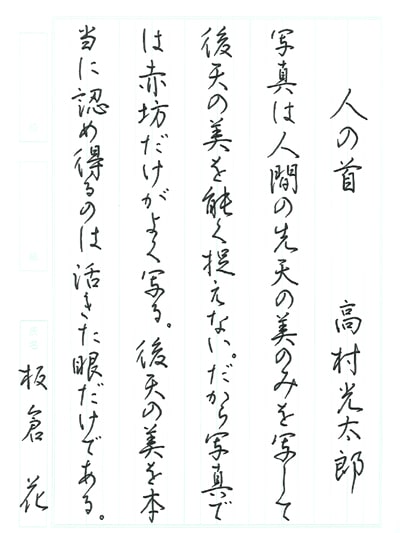 人の首 高村光太郎
写真は人間の先天の美のみを写して
後天の美を能く捉えない。だから写真で
は赤坊だけがよく写る。後天の美を本
当に認め得るのは活きた眼だけである。
板倉花